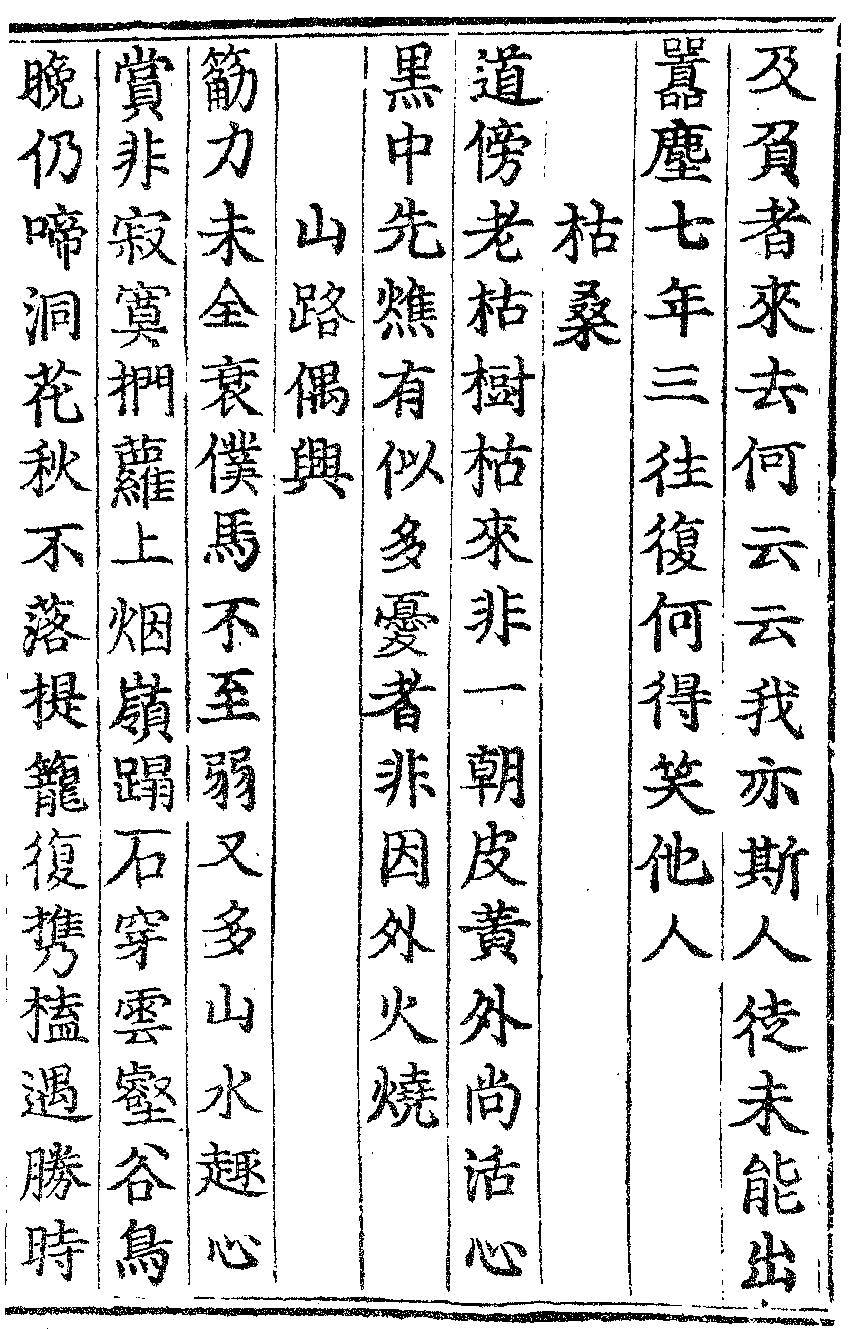 及負者來去何云云我亦斯人徒未能出
囂塵七年三往復何得笑他人
枯桑
道傍老枯樹枯來非一朝皮黃外尚活心
黒中先燋有似多憂者非因外火燒
山路偶興
筋力未全衰僕馬不至弱又多山水趣心
賞非寂寞捫蘿上烟嶺蹋石穿雲壑谷鳥
晚仍啼洞花秋不落提籠復携榼遇勝時